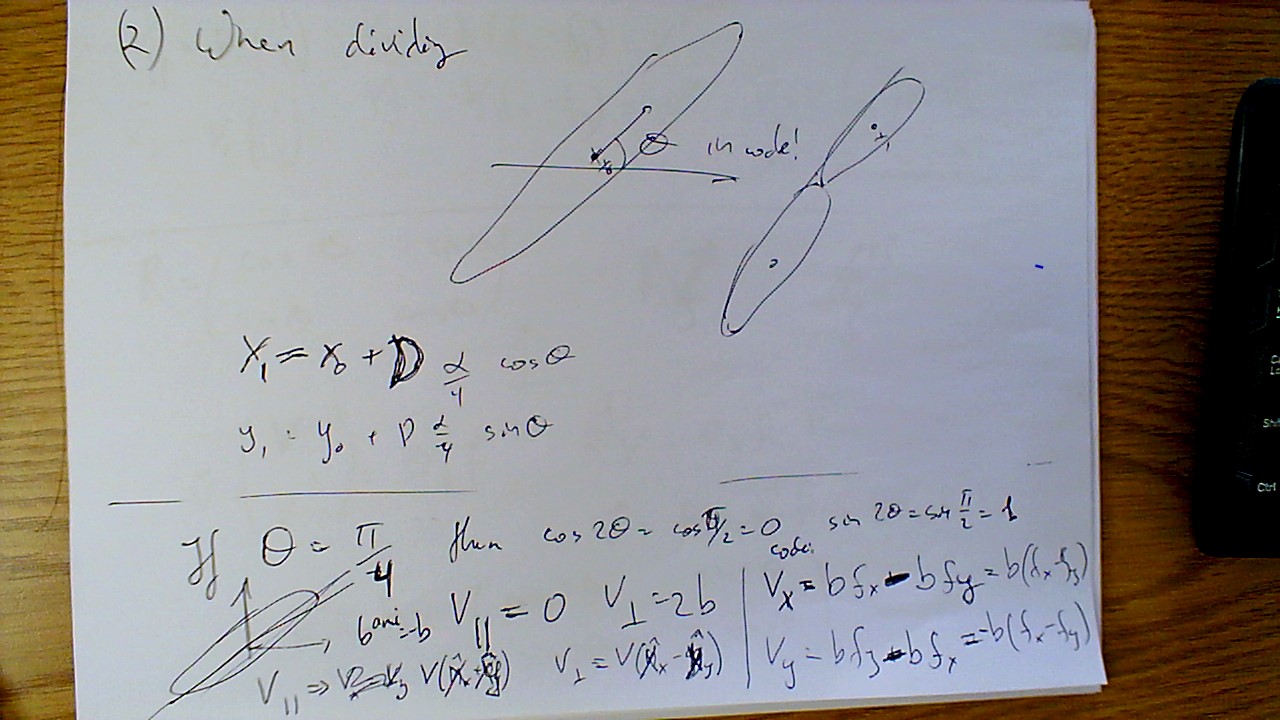 (2) When dividing
θ in code!
x₀
x₁ = x₀ + D α/4 cosθ
y₁ = y₀ + D α/4 sinθ
If θ = π/4 then cos 2θ = cos π/2 = 0 sin 2θ = sin π/2 = 1
code:
b^ani = -b V_|| = 0 V_⊥ = 2b | V_x = b f_x - b f_y = b(f_x - f_y)
V_|| ⇒ V(x̂ + ŷ) V_⊥ = V(x̂ - ŷ) | V_y = b f_y - b f_x = -b(f_x - f_y)